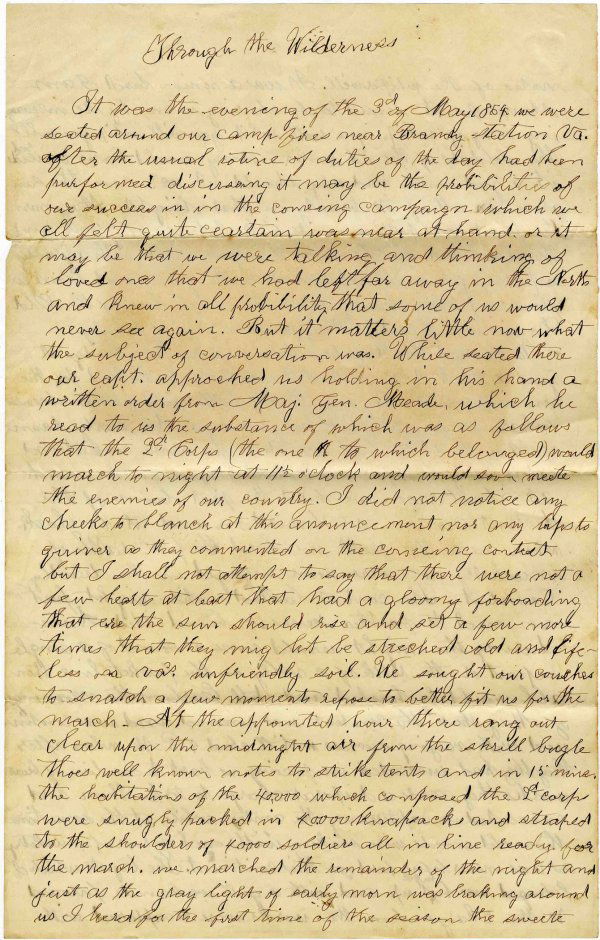 Through the Wilderness
It was the evening of the 3d of May 1864 we were
seated around our camp fires near Brandy station Va.
after the usual rotine of duties of the day had been
purformed discussing it may be the probibilities of
our success in in the comeing campaign which we
all felt quite ceartain was near at hand. or it
may be that we were talking and thinking of
loved ones that we had left far away in the North
and knew in all probibility that some of us would
never see again. But it matters little now what
the subject of conversation was. While seated there
our capt. approched us holding in his hand a
written order from Maj. Gen. Meade, which he
read to us the substance of which was as follows
that the 2d Corps (the one to which belonged) would
march to night at 11½ oclock and would soon meete
the enemies of our country. I did not notice any
cheeks to blanch at this anouncement nor any lips to
quiver as they commented on the comeing contest
but I shall not attempt to say that there were not a
few hearts at least that had a gloomy forboading
that ere the sun should rise and set a few more
times that they mig ht be streched cold and life-
less on Va's. unfriendly soil. We sought our couches
to snatch a few moments repose to better fit us for the
march. At the appointed hour there rang out
clear upon the midnight air from the skrill bugle
thoes well known notes to strike tents and in 15 mins.
the habitations of the 40000 which composed the 2d corp
were snugly packed in 40000 knapsacks and straped
to the shoulders of 40000 soldiers all in line ready for
the march. we marched the remainder of the night and
just as the gray light of early morn was braking around
us I herd for the first time of the season the sweete